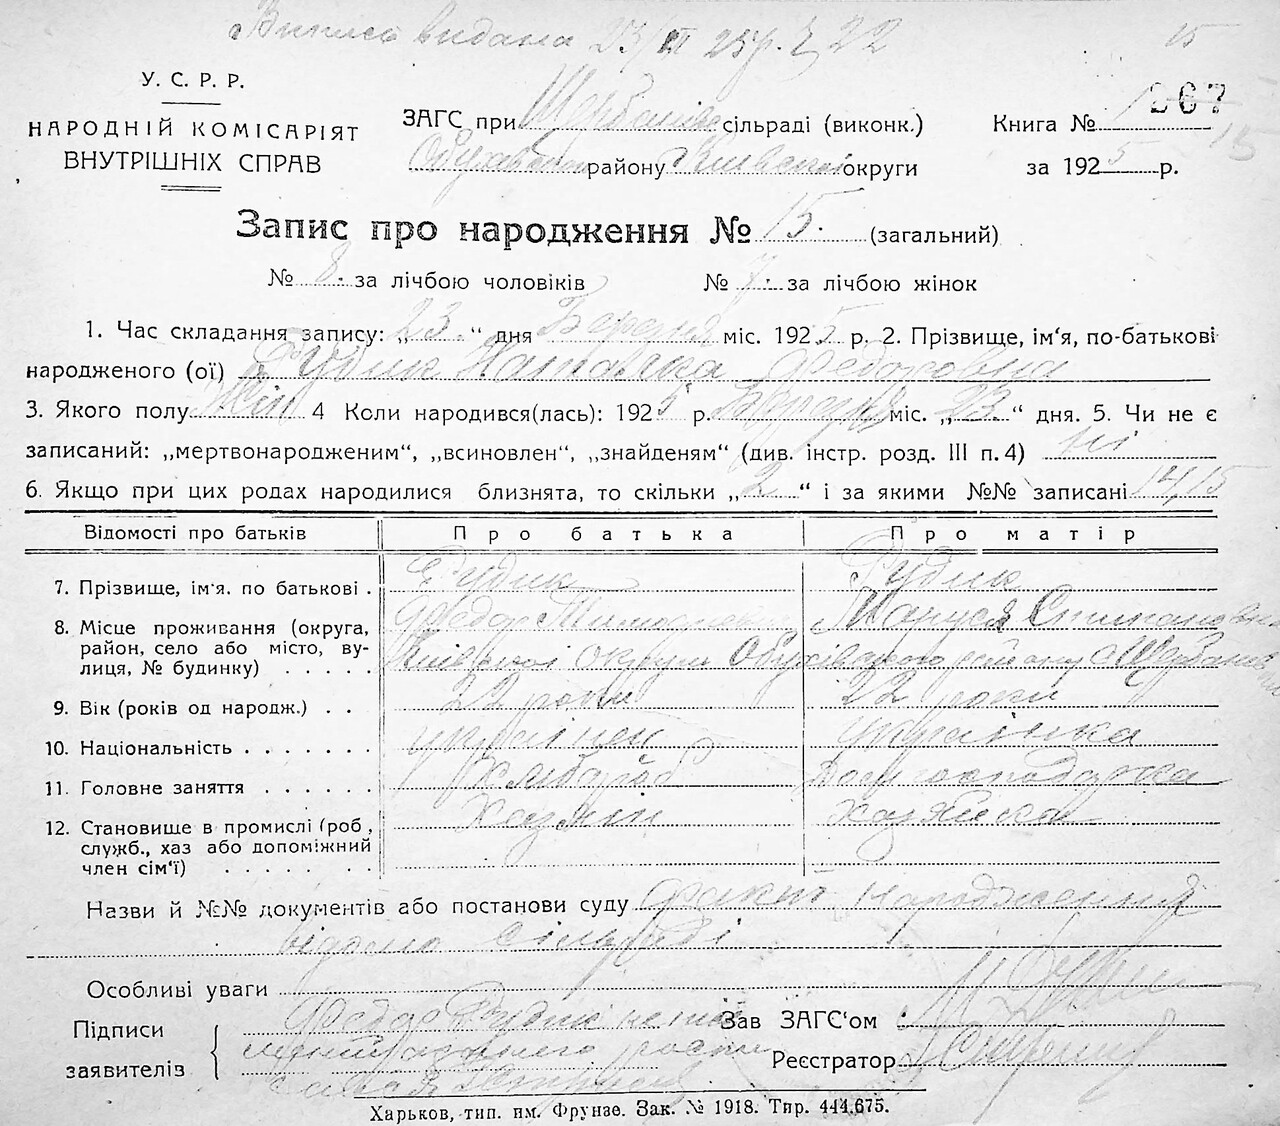 Виписа видана 23/III 25 р. № 22
15
У. С. Р. Р.
НАРОДНІЙ КОМІСАРІЯТ
ВНУТРІШНІХ СПРАВ
ЗАГС при Щербанівс сільраді (виконк.)
Обухівсько району Київської округи
Книга № 1 267
15
за 1925 р.
Запис про народження № 15. (загальний)
№ 8. за лічбою чоловіків № 7. за лічбою жінок
1. Час складання запису: „23.“ дня Березня міс. 1925 р. 2. Прізвище, ім‘я, по-батькові
народженого (ої) Рудик Наталка Федоровна
3. Якого полу жін 4 Коли народився(лась): 1925 р. Березня міс. „23.“ дня. 5. Чи не є
записаний: „мертвонародженим“, „всиновлен“, „знайденям“ (див. інстр. розд. III п. 4) ні
6. Якщо при цих родах народилися близнята, то скільки „2“ і за якими №№ записані 14,15
Відомості про батьків Про батька Про матір
7. Прізвище, ім‘я. по батькові . Рудик Рудик
Федор Маруся Степановна
8. Місце проживання (округа,
район, село або місто, ву-
лиця, № будинку) . . . . . Київської округи Обухівського району с Щербанівка
9. Вік (років од народж.) . . 22 роки 22 роки
10. Національність . . . . . . . українец українка
11. Головне заняття . . . . . . Хлібороб Домогосподарка
12. Становище в промислі (роб., Хазяїн хазяйка
служб., хаз або допоміжний
член сім‘ї) . . . . . . . .
Назви й №№ документів або постанови суду Факт народження
відомо сільраді
Особливі уваги
Підписи
заявителів
Федор Рудик
Зав ЗАГС‘ом
Реєстратор
Харьков, тип. им. Фрунзе. Зак. № 1918. Тир. 444.675.